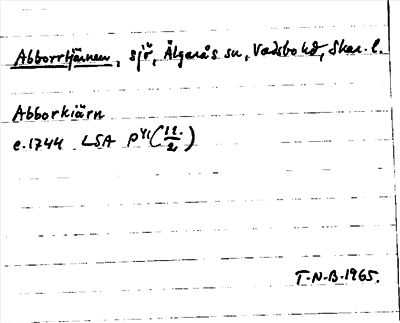 Abborrtjärnen, sjö, Älgarås sn, Vadsbo hd, Skar. l.
Abborkiärn
c. 1744 LSA P 41 (11/2)
T.N.B. 1965.